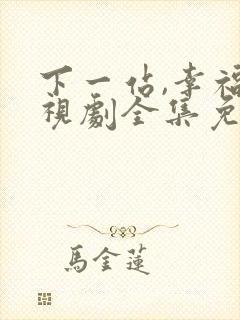 下一站,幸福
視劇全集免
馬金蓮